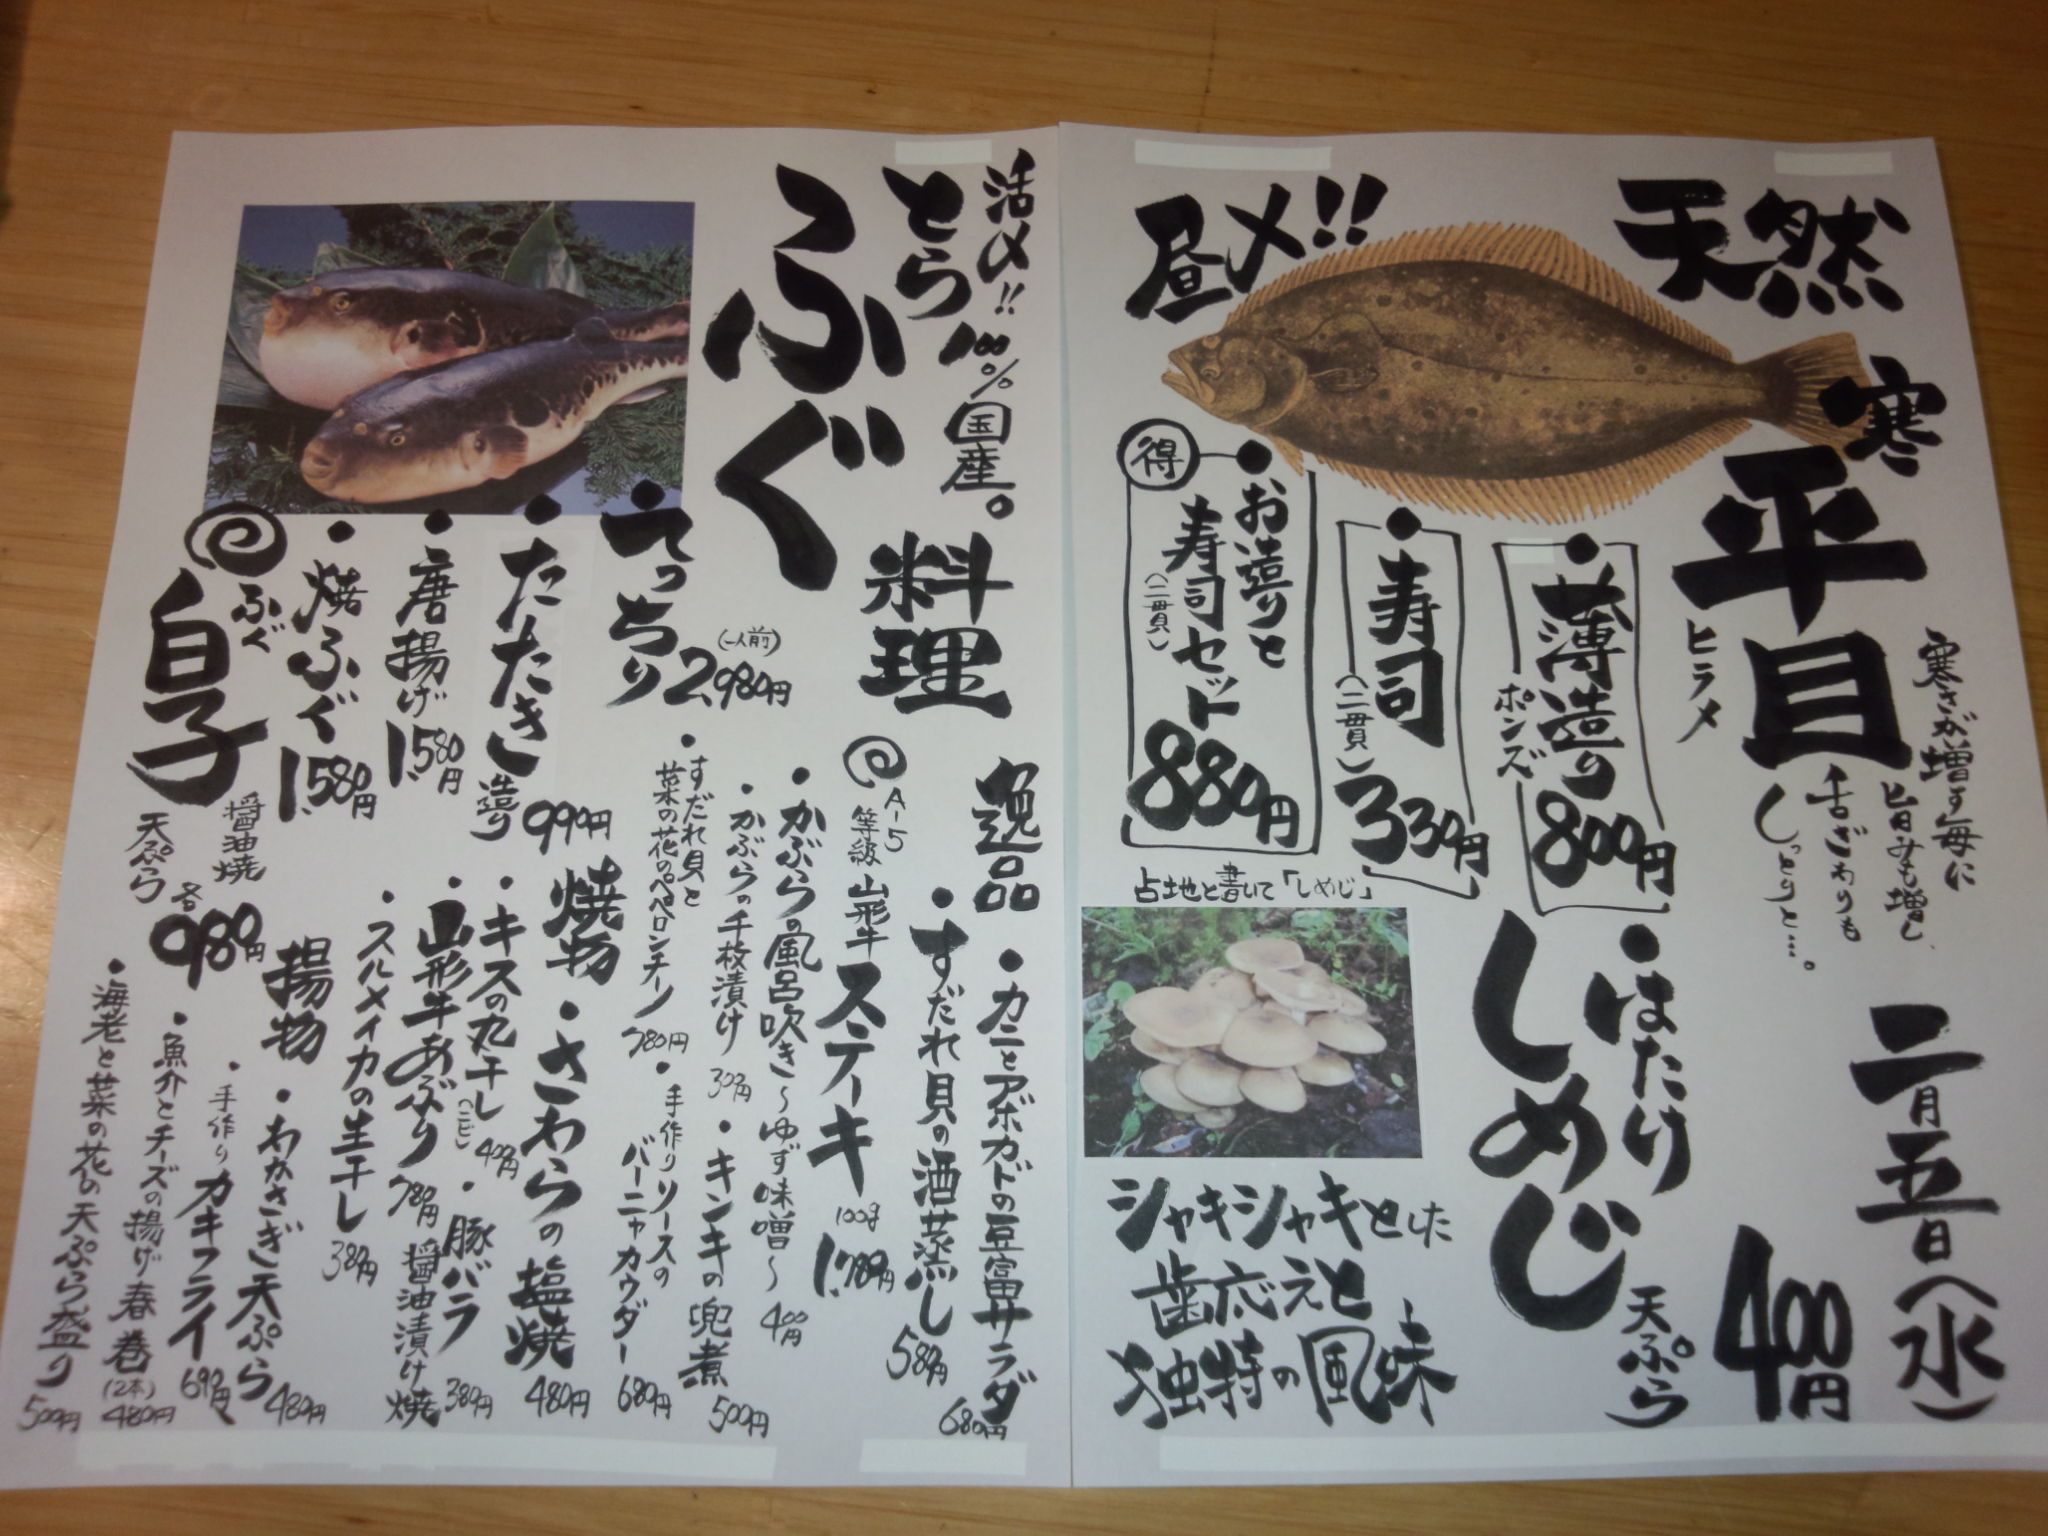 天然
寒
平目
ヒラメ
昼〆!!
寒さが増す毎に
旨みも増し、
舌ざわりも
しっとりと…。
二月五日(水)
・薄造り
ポンズ
800円
・寿司
(二貫)
330円
得
・お造りと
寿司セット
(二貫)
880円
・はたけ
しめじ
天ぷら
400円
占地と書いて「しめじ」
シャキシャキとした
歯応えと
独特の風味
活〆!!
100%国産。
とら
ふぐ
料理
・てっちり
(一人前)
2,980円
・たたき
造り
990円
・唐揚げ
1,580円
・焼ふぐ
1,580円
ふぐ
白子
醤油焼
天ぷら
各
980円
逸品
・カニとアボカドの豆富サラダ
680円
・すだれ貝の酒蒸し
580円
A-5
等級
山形牛
ステーキ
100g
1,780円
・かぶらの風呂吹き〜ゆず味噌〜
400円
・かぶらの千枚漬け
・キンキの兜煮
500円
・すだれ貝と
菜の花のペペロンチーノ
780円
・手作りソースの
バーニャカウダー
680円
焼物
・さわらの塩焼
480円
・キスの丸干し
400円
・豚バラ
醤油漬け焼
380円
・山形牛あぶり
780円
・スルメイカの生干し
380円
揚物
・わかさぎ天ぷら
480円
・手作りカキフライ
690円
・魚介とチーズの揚げ春巻
(2本)
480円
・海老と菜の花の天ぷら盛り
500円